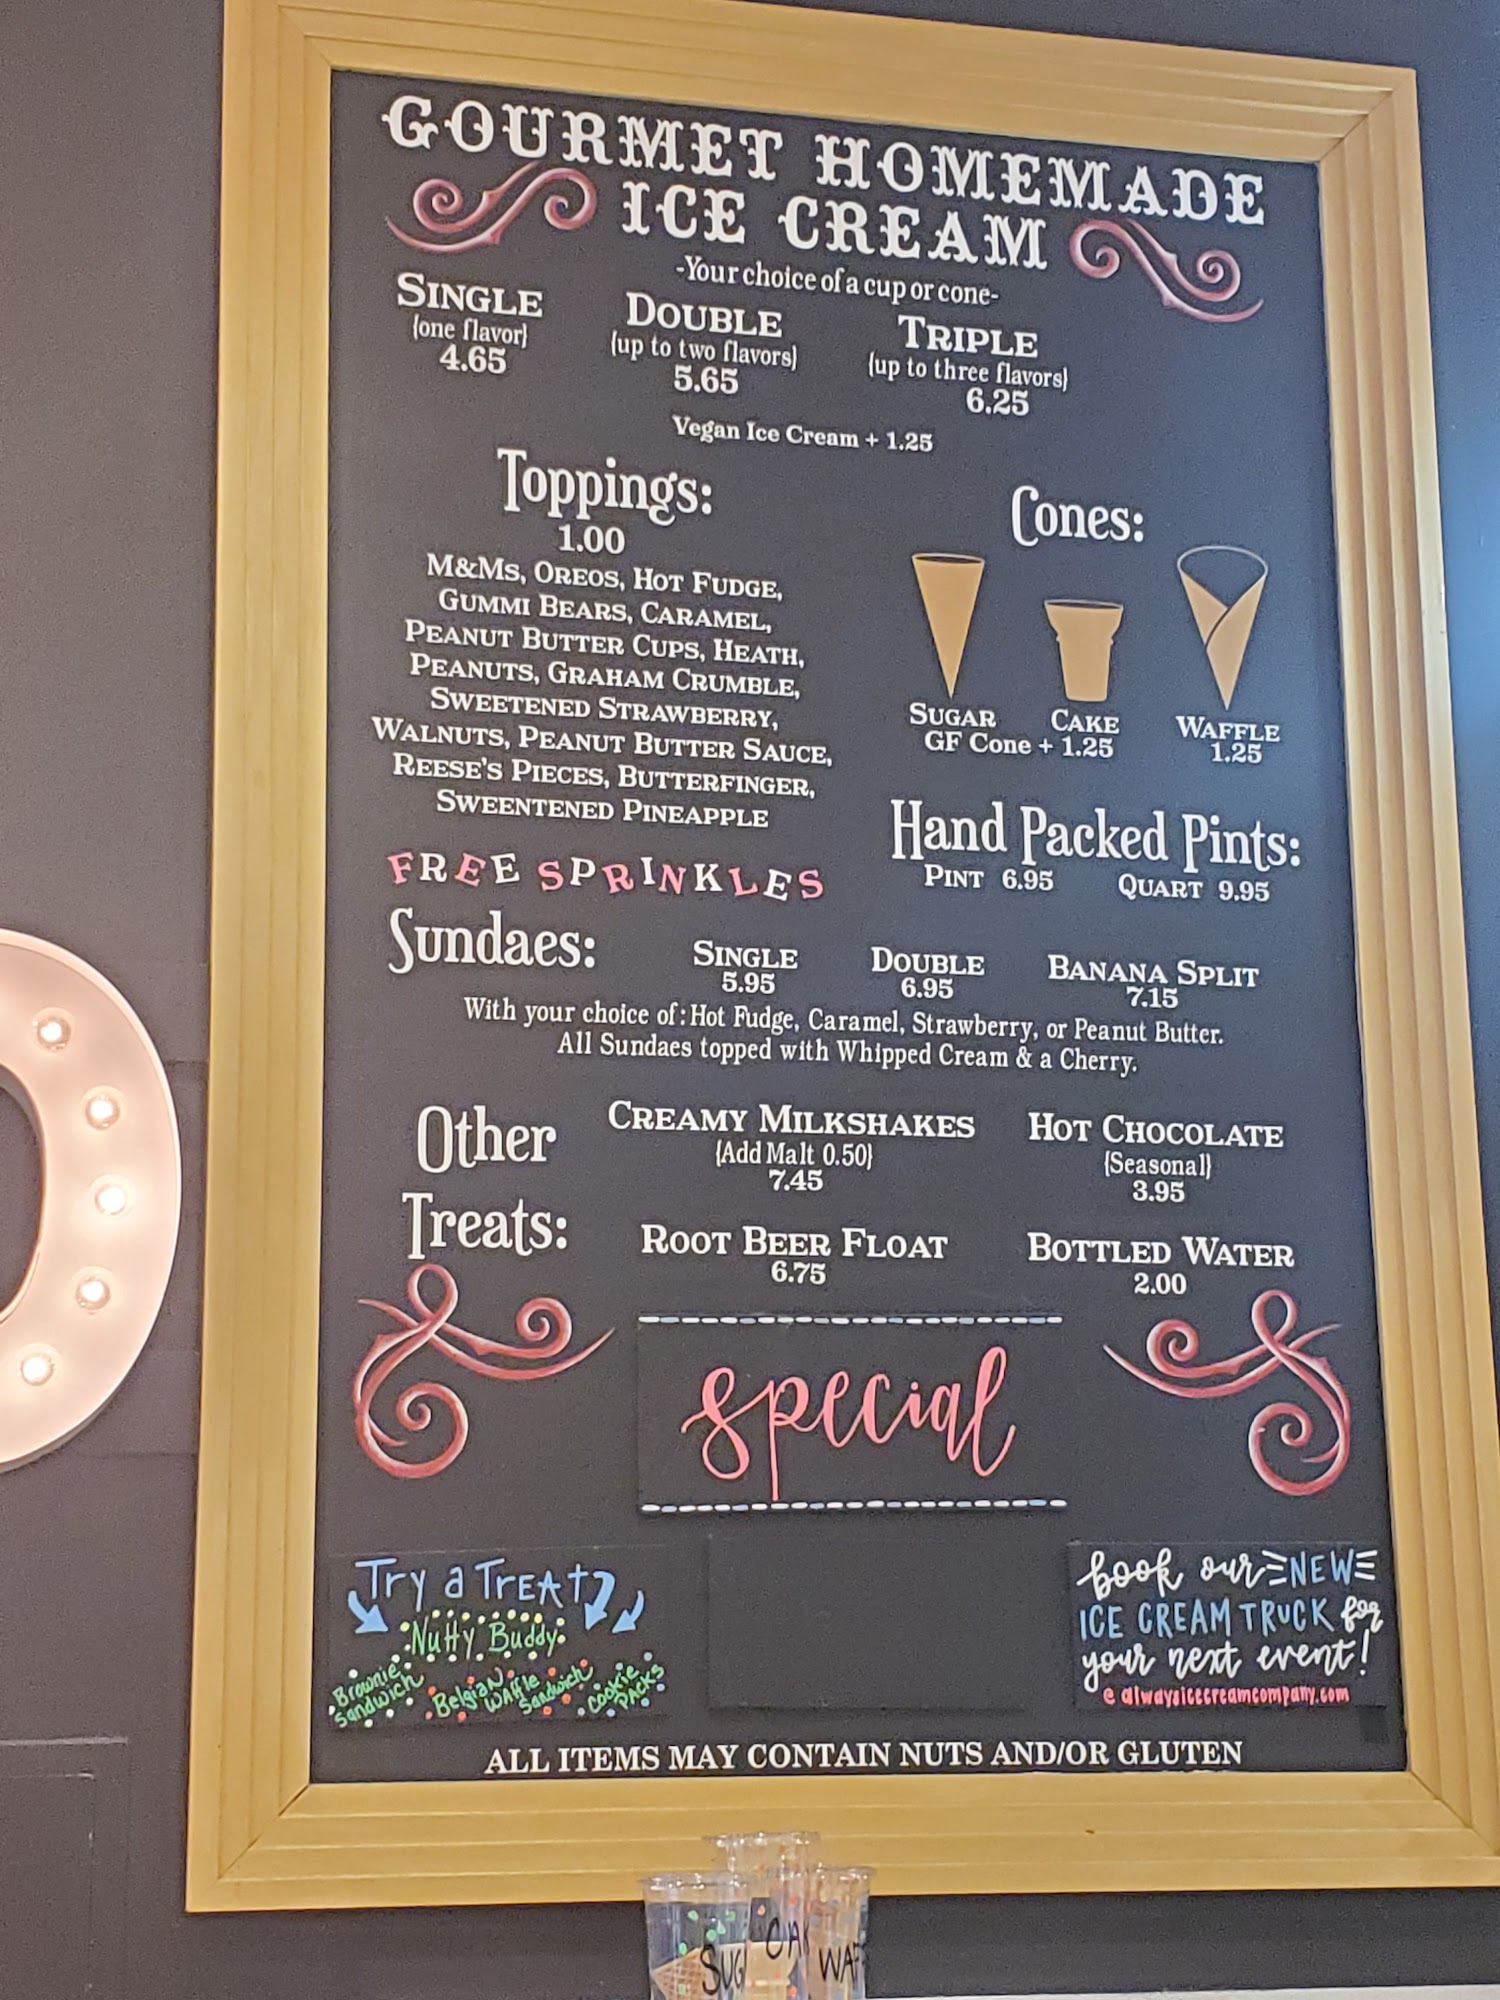 GOURMET HOMEMADE
ICE CREAM
-Your choice of a cup or cone-
SINGLE
{one flavor}
4.65
DOUBLE
{up to two flavors}
5.65
TRIPLE
{up to three flavors}
6.25
Vegan Ice Cream + 1.25
Toppings:
1.00
M&MS, OREOS, HOT FUDGE,
GUMMI BEARS, CARAMEL,
PEANUT BUTTER CUPS, HEATH,
PEANUTS, GRAHAM CRUMBLE,
SWEETENED STRAWBERRY,
WALNUTS, PEANUT BUTTER SAUCE,
REESE'S PIECES, BUTTERFINGER,
SWEENTENED PINEAPPLE
FREE SPRINKLES
Cones:
SUGAR
CAKE
GF Cone + 1.25
WAFFLE
1.25
Hand Packed Pints:
PINT 6.95 QUART 9.95
Sundaes:
SINGLE
5.95
DOUBLE
6.95
BANANA SPLIT
7.15
With your choice of: Hot Fudge, Caramel, Strawberry, or Peanut Butter.
All Sundaes topped with Whipped Cream & a Cherry.
Other
Treats:
CREAMY MILKSHAKES
{Add Malt 0.50}
7.45
HOT CHOCOLATE
{Seasonal}
3.95
ROOT BEER FLOAT
6.75
BOTTLED WATER
2.00
special
Try a TREAT
Nutty Buddy
Brownie
Sandwich
Belgian
Waffle
Sandwich
Cookie
Packs
book our NEW
ICE CREAM TRUCK for
your next event!
@ alwaysicecreamcompany.com
ALL ITEMS MAY CONTAIN NUTS AND/OR GLUTEN
SUG
CAK
WAF